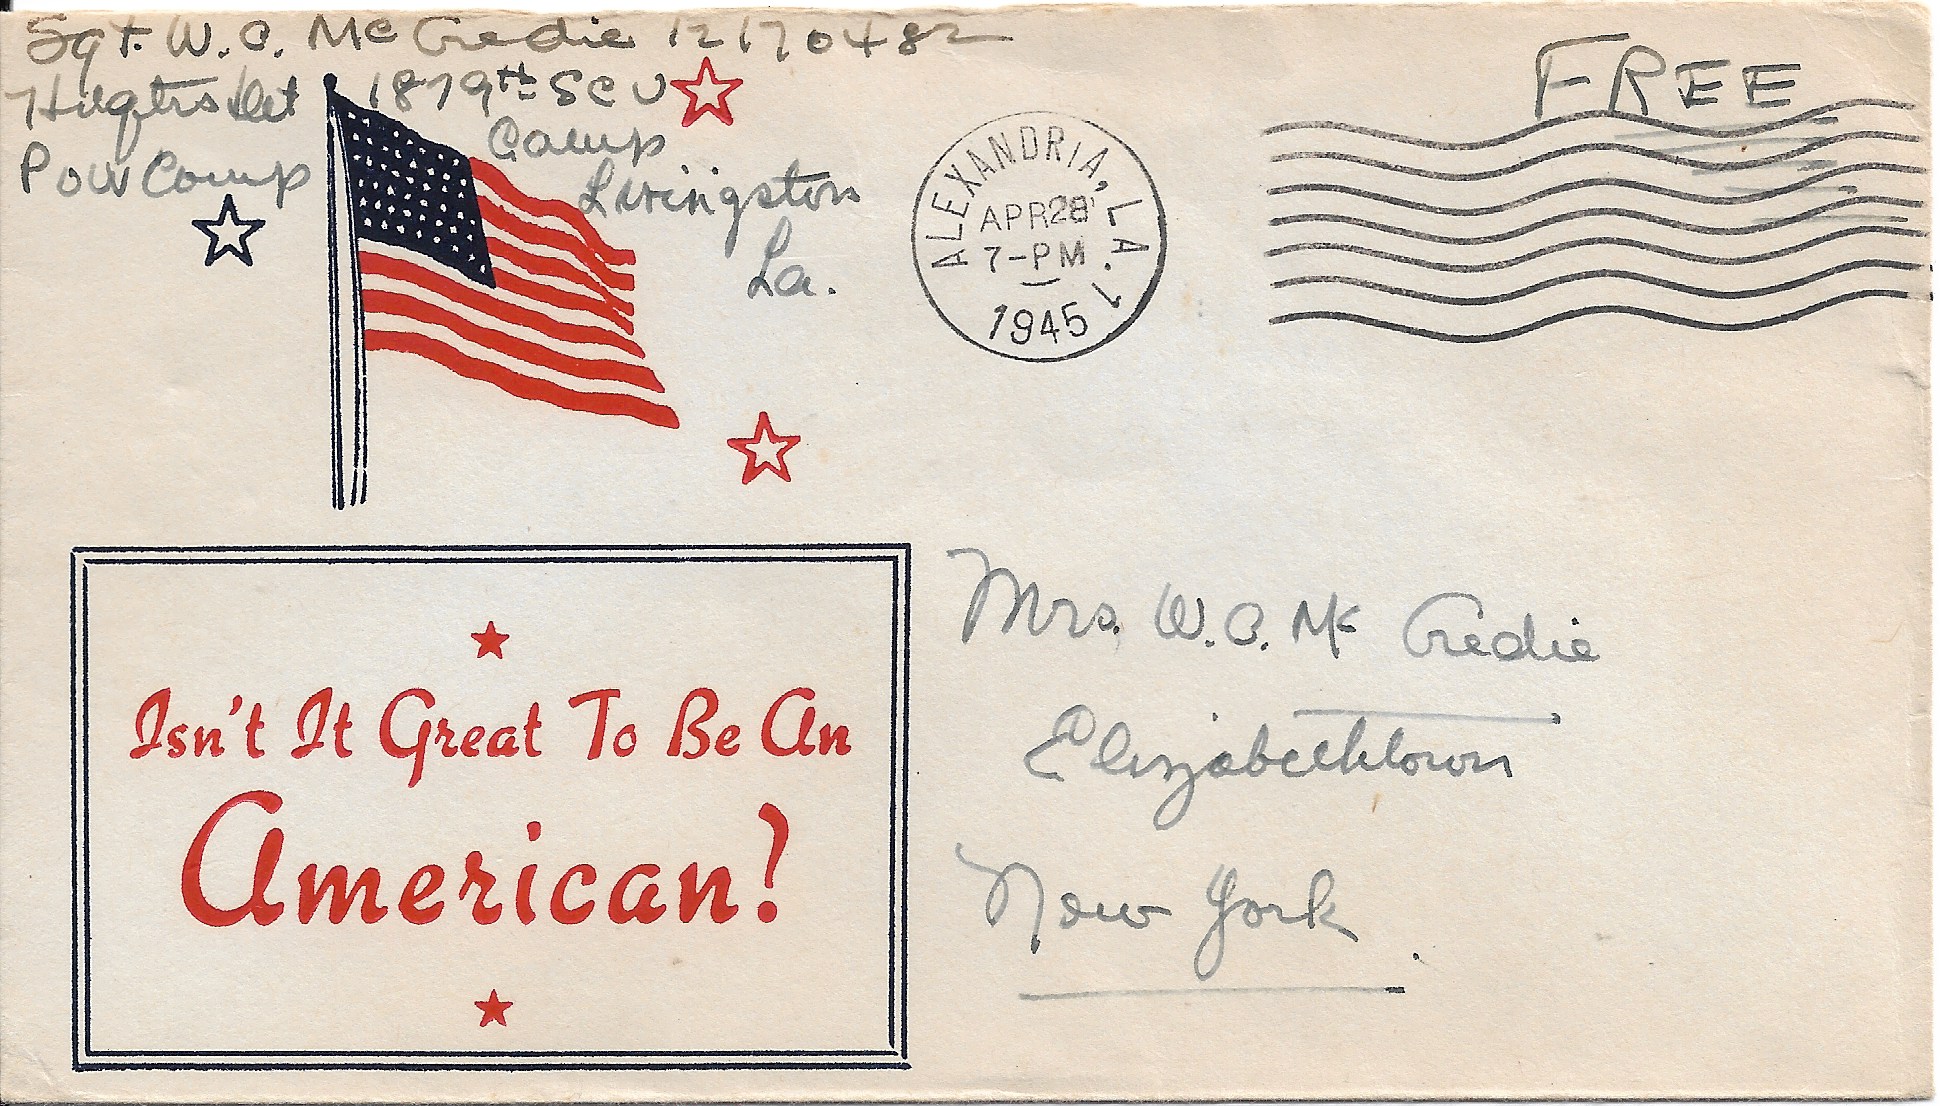 Sgt. W. C. Mc Credie 12170482
Hdqtrs Det 1879th SCU
POW Camp Camp
Livingston
La.
FREE
ALEXANDRIA, LA. 1
APR 28
7-PM
1945
Mrs. W. C. Mc Credie
Elizabethtown
New York.
Isn't It Great To Be An
American!